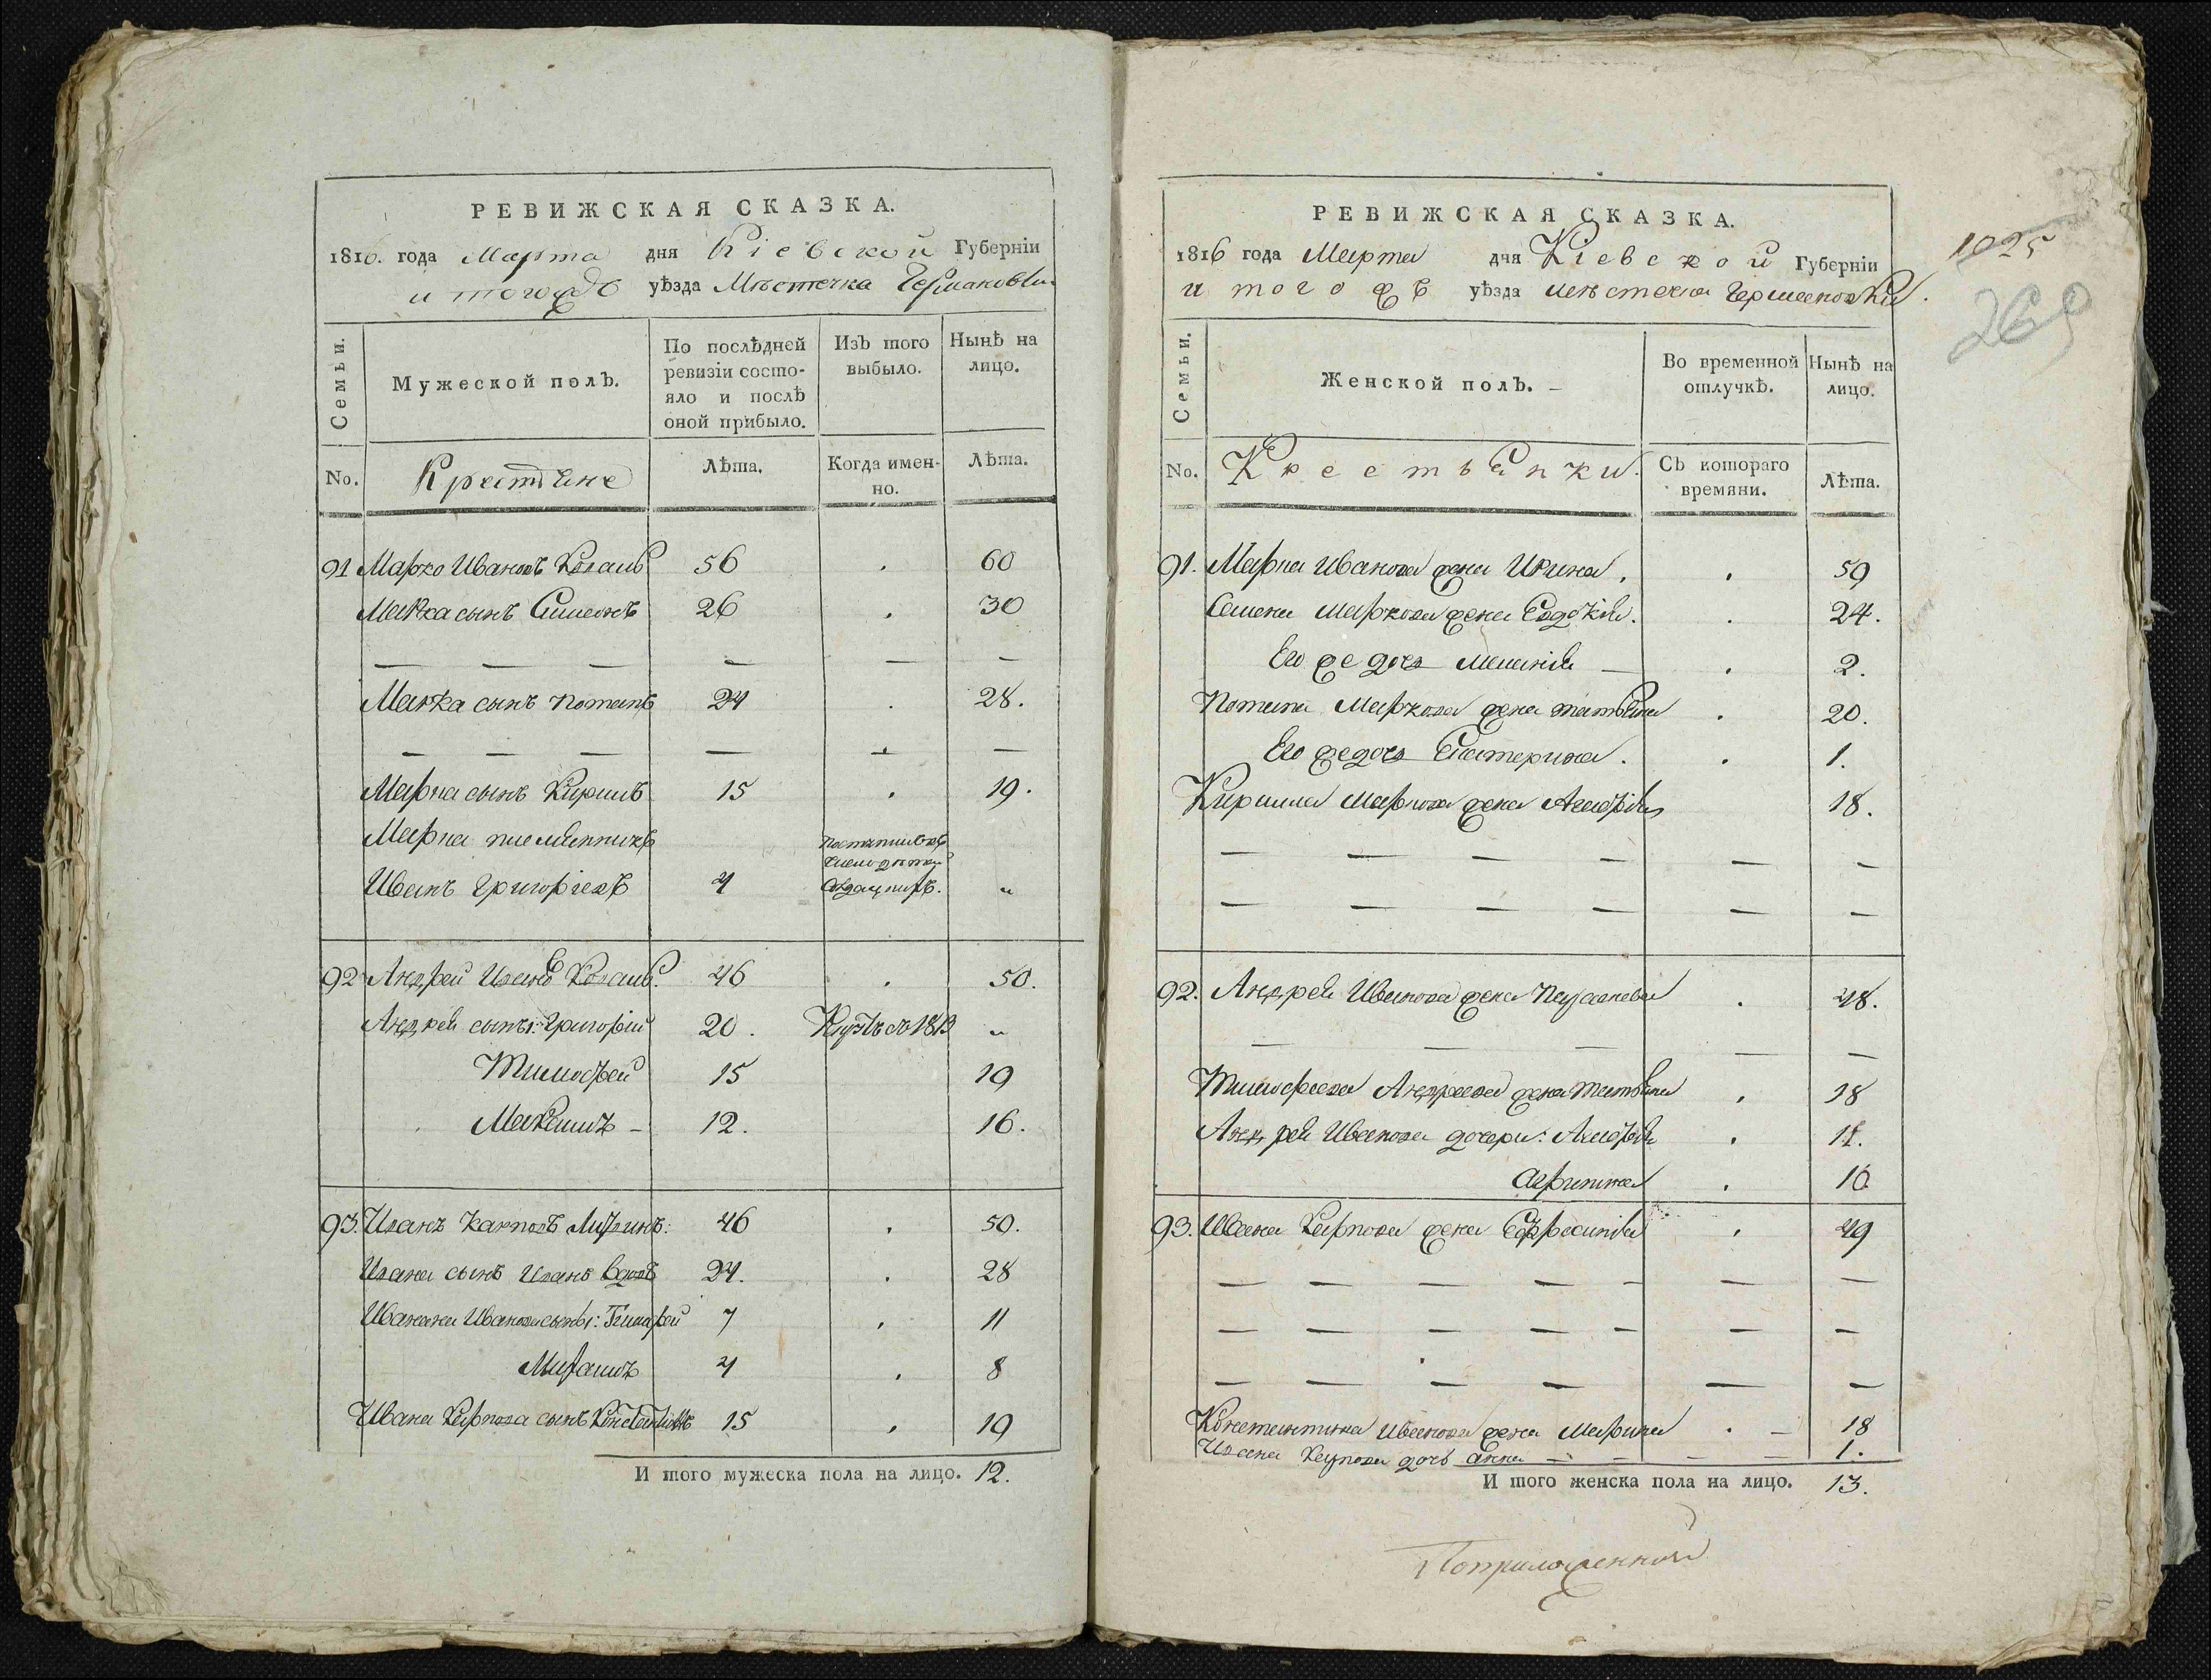 РЕВИЖСКАЯ СКАЗКА.
1816. года Марта дня Кіевской Губерніи
и тогожъ уѣзда Мѣстечка Германовки
Семьи.
Мужеской полъ.
По послѣдней ревизіи состояло и послѣ оной прибыло.
Изъ того выбыло.
Нынѣ на лицо.
No. Крестьяне Лѣта. Когда именно. Лѣта.
91 Марко Ивановъ 56 . 60
Марка сынъ Симеонъ 26 . 30
— — — — — —
Марка сынъ Потапъ 24 . 28.
— — — — — —
Марка сынъ Кирилъ 15 . 19.
Марка племянникъ
Иванъ Григоріевъ 4 "
92 Андрей Ивановъ 46 . 50.
Андрея сыны: Григорій 20. 1813 "
Тимофей 15 19
Максимъ — 12. 16.
93. Иванъ Карповъ 46 . 50.
Ивана сынъ Иванъ вдовъ 24. . 28
Ивана Иванова сыны: Тимофей 7 . 11
4 . 8
Ивана Карпова сынъ Константинъ 15 . 19
И того мужеска пола на лицо. 12.
РЕВИЖСКАЯ СКАЗКА.
1816 года Марта дня Кіевской Губерніи
и тогожъ уѣзда мѣстечка Германовки.
1025
269
Семьи.
Женской полъ. —
Во временной отлучкѣ.
Нынѣ на лицо.
No. Крестьянки. Съ котораго времяни. Лѣта.
91. Марка Иванова жена Ирина. . 59
Семена Маркова жена Евдокія. . 24.
Его же дочь Меланія — . 2.
Потапа Маркова жена татьяна . 20.
Его же дочь Екатерина. . 1.
Кирилла Маркова жена 18.
— — — — — —
— — — — — —
92. Андрея Иванова жена . 48.
— — — — —
Тимофея Андреева жена татьяна . 18
Андрея Иванова дочери: . 11.
Агрипина . 10
93. Ивана Карпова жена Ефросинія . 49
— — — — — — —
— — — — — — —
— — — — — —
Константина Иванова жена Марина . — 18
Ивана Карпова дочь анна — — — — 1.
И того женска пола на лицо. 13.